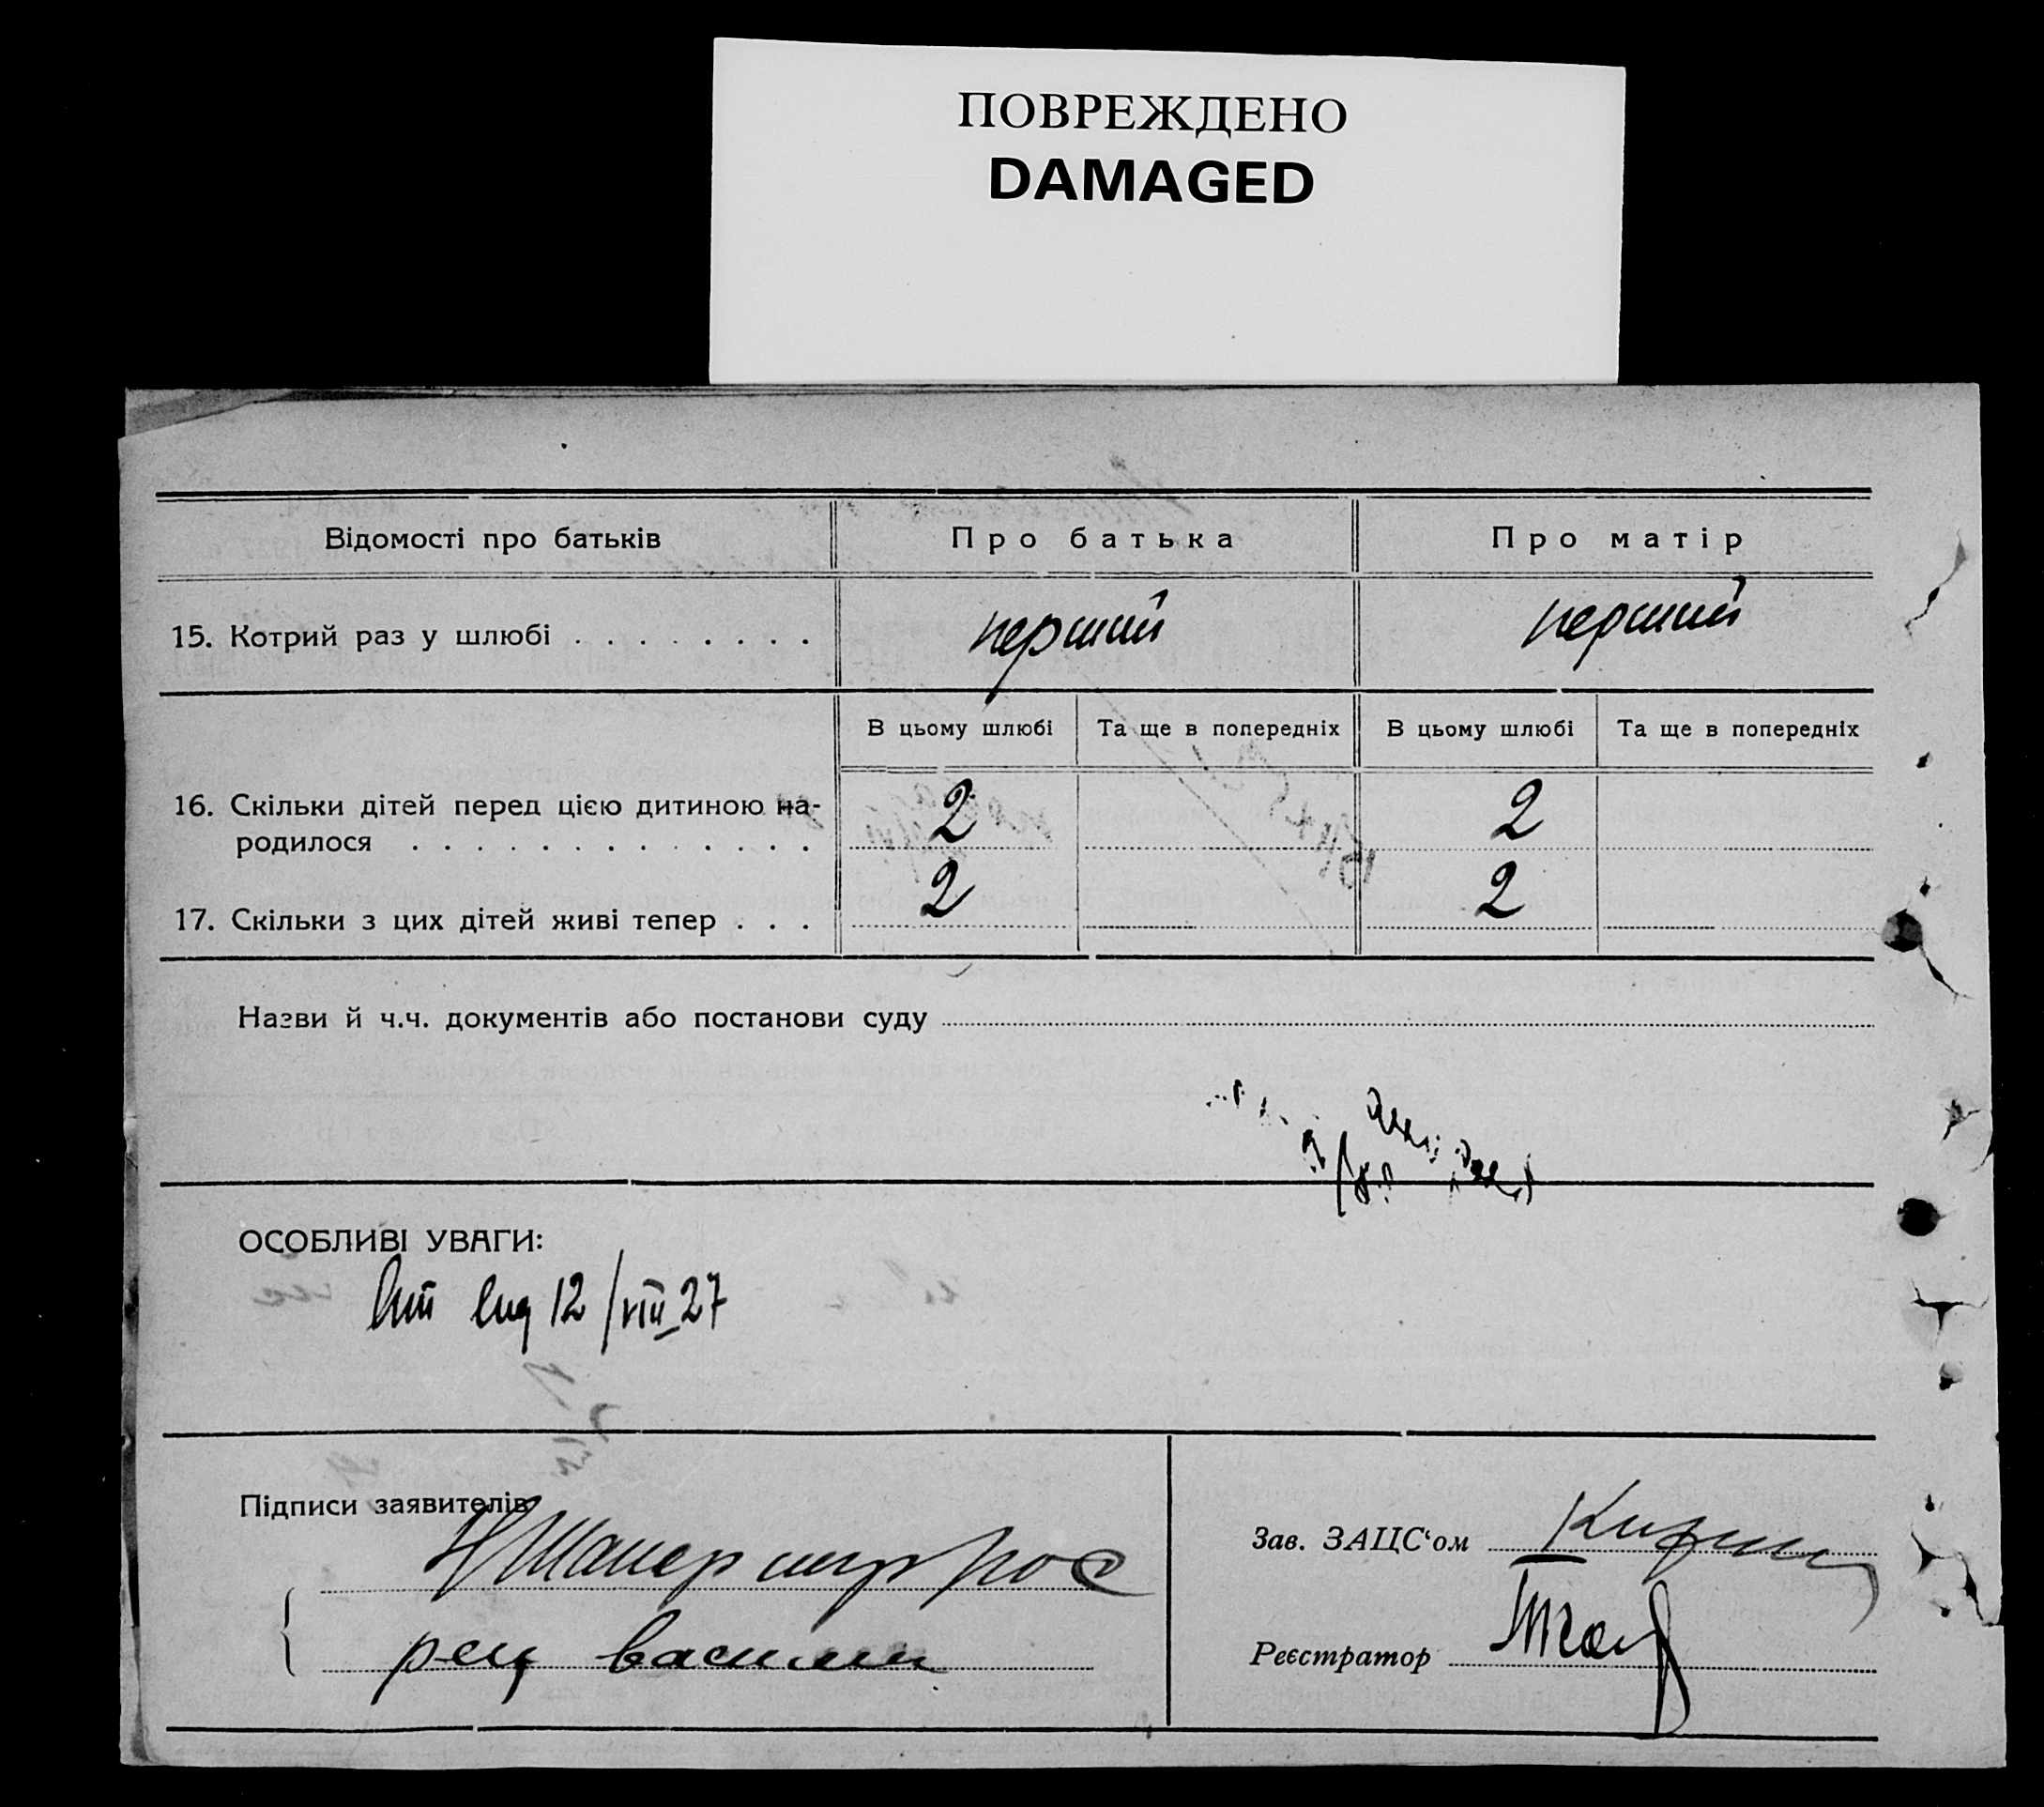 ПОВРЕЖДЕНО
DAMAGED
Відомості про батьків
Про батька
Про матір
15. Котрий раз у шлюбі . . . . . . . .
перший
перший
В цьому шлюбі
Та ще в попередніх
В цьому шлюбі
Та ще в попередніх
16. Скільки дітей перед цією дитиною на-
родилося . . . . . . . . . . . . . .
2
2
17. Скільки з цих дітей живі тепер . . .
2
2
Назви й ч.ч. документів або постанови суду
ОСОБЛИВІ УВАГИ:
12/VIII 27
Підписи заявителів
Зав. ЗАЦС'ом
Реєстратор